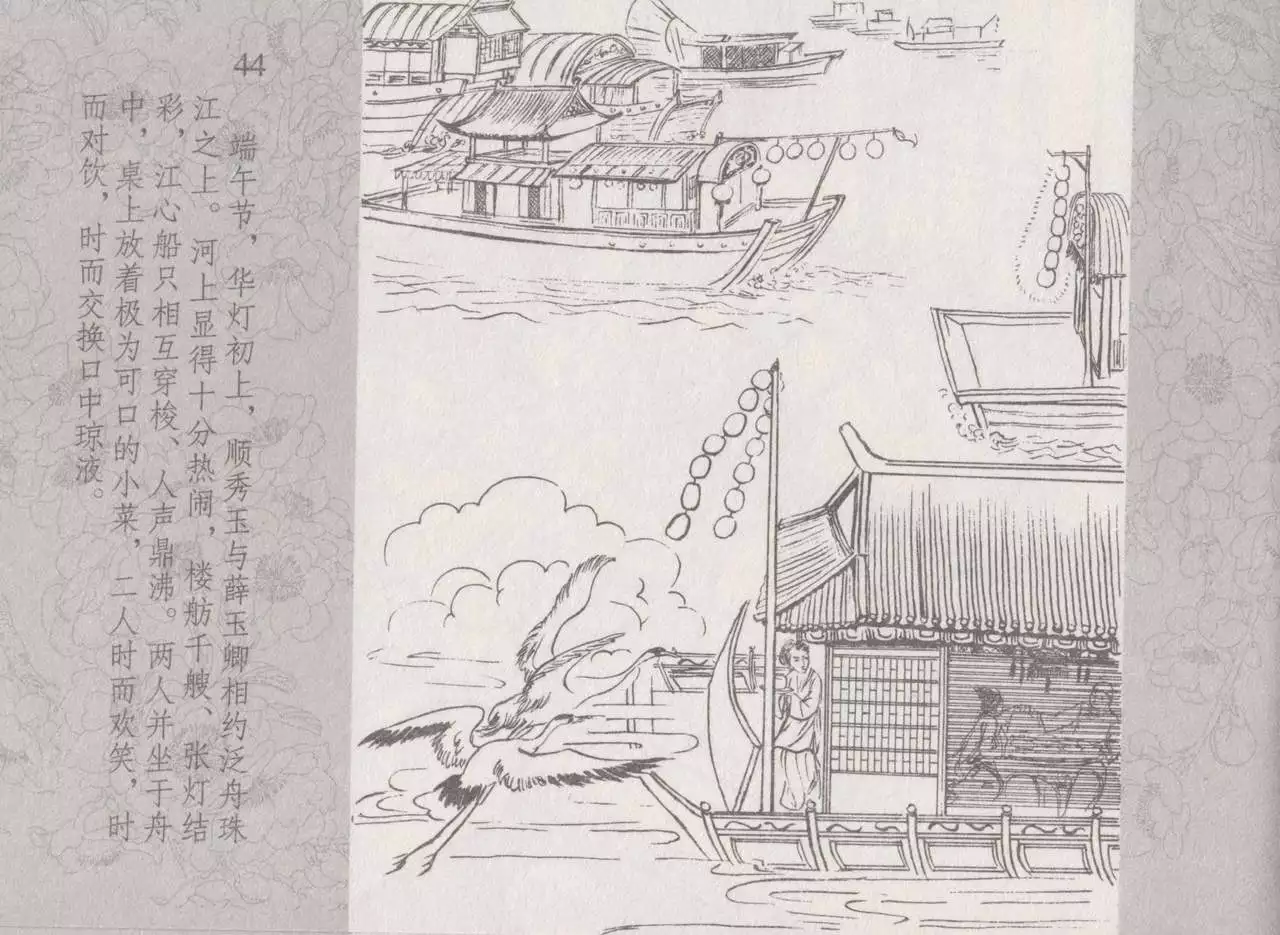 44
端午节，华灯初上，顺秀玉与薛玉卿相约泛舟珠
江之上。河上显得十分热闹，楼舫千艘、张灯结
彩，江心船只相互穿梭、人声鼎沸。两人并坐于舟
中，桌上放着极为可口的小菜，二人时而欢笑，时
而对饮，时而交换口中琼液。